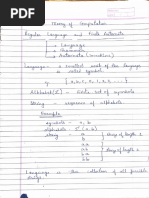 Theory of Computation
Regular Language and Finite Automata
→ Language
→ Automata (machine)
Language -
is called symbol.
eg { a, b, c, 0, 1, 2, ... }
Alphabet (Σ) - finite set of symbols
String - sequence of alphabets
Example
symbols - a, b
alphabets - Σ (a, b)
string - a
b
String of length 1
aa
ab
ba
bb
String of length 2
Language is the collection of all possible
strings